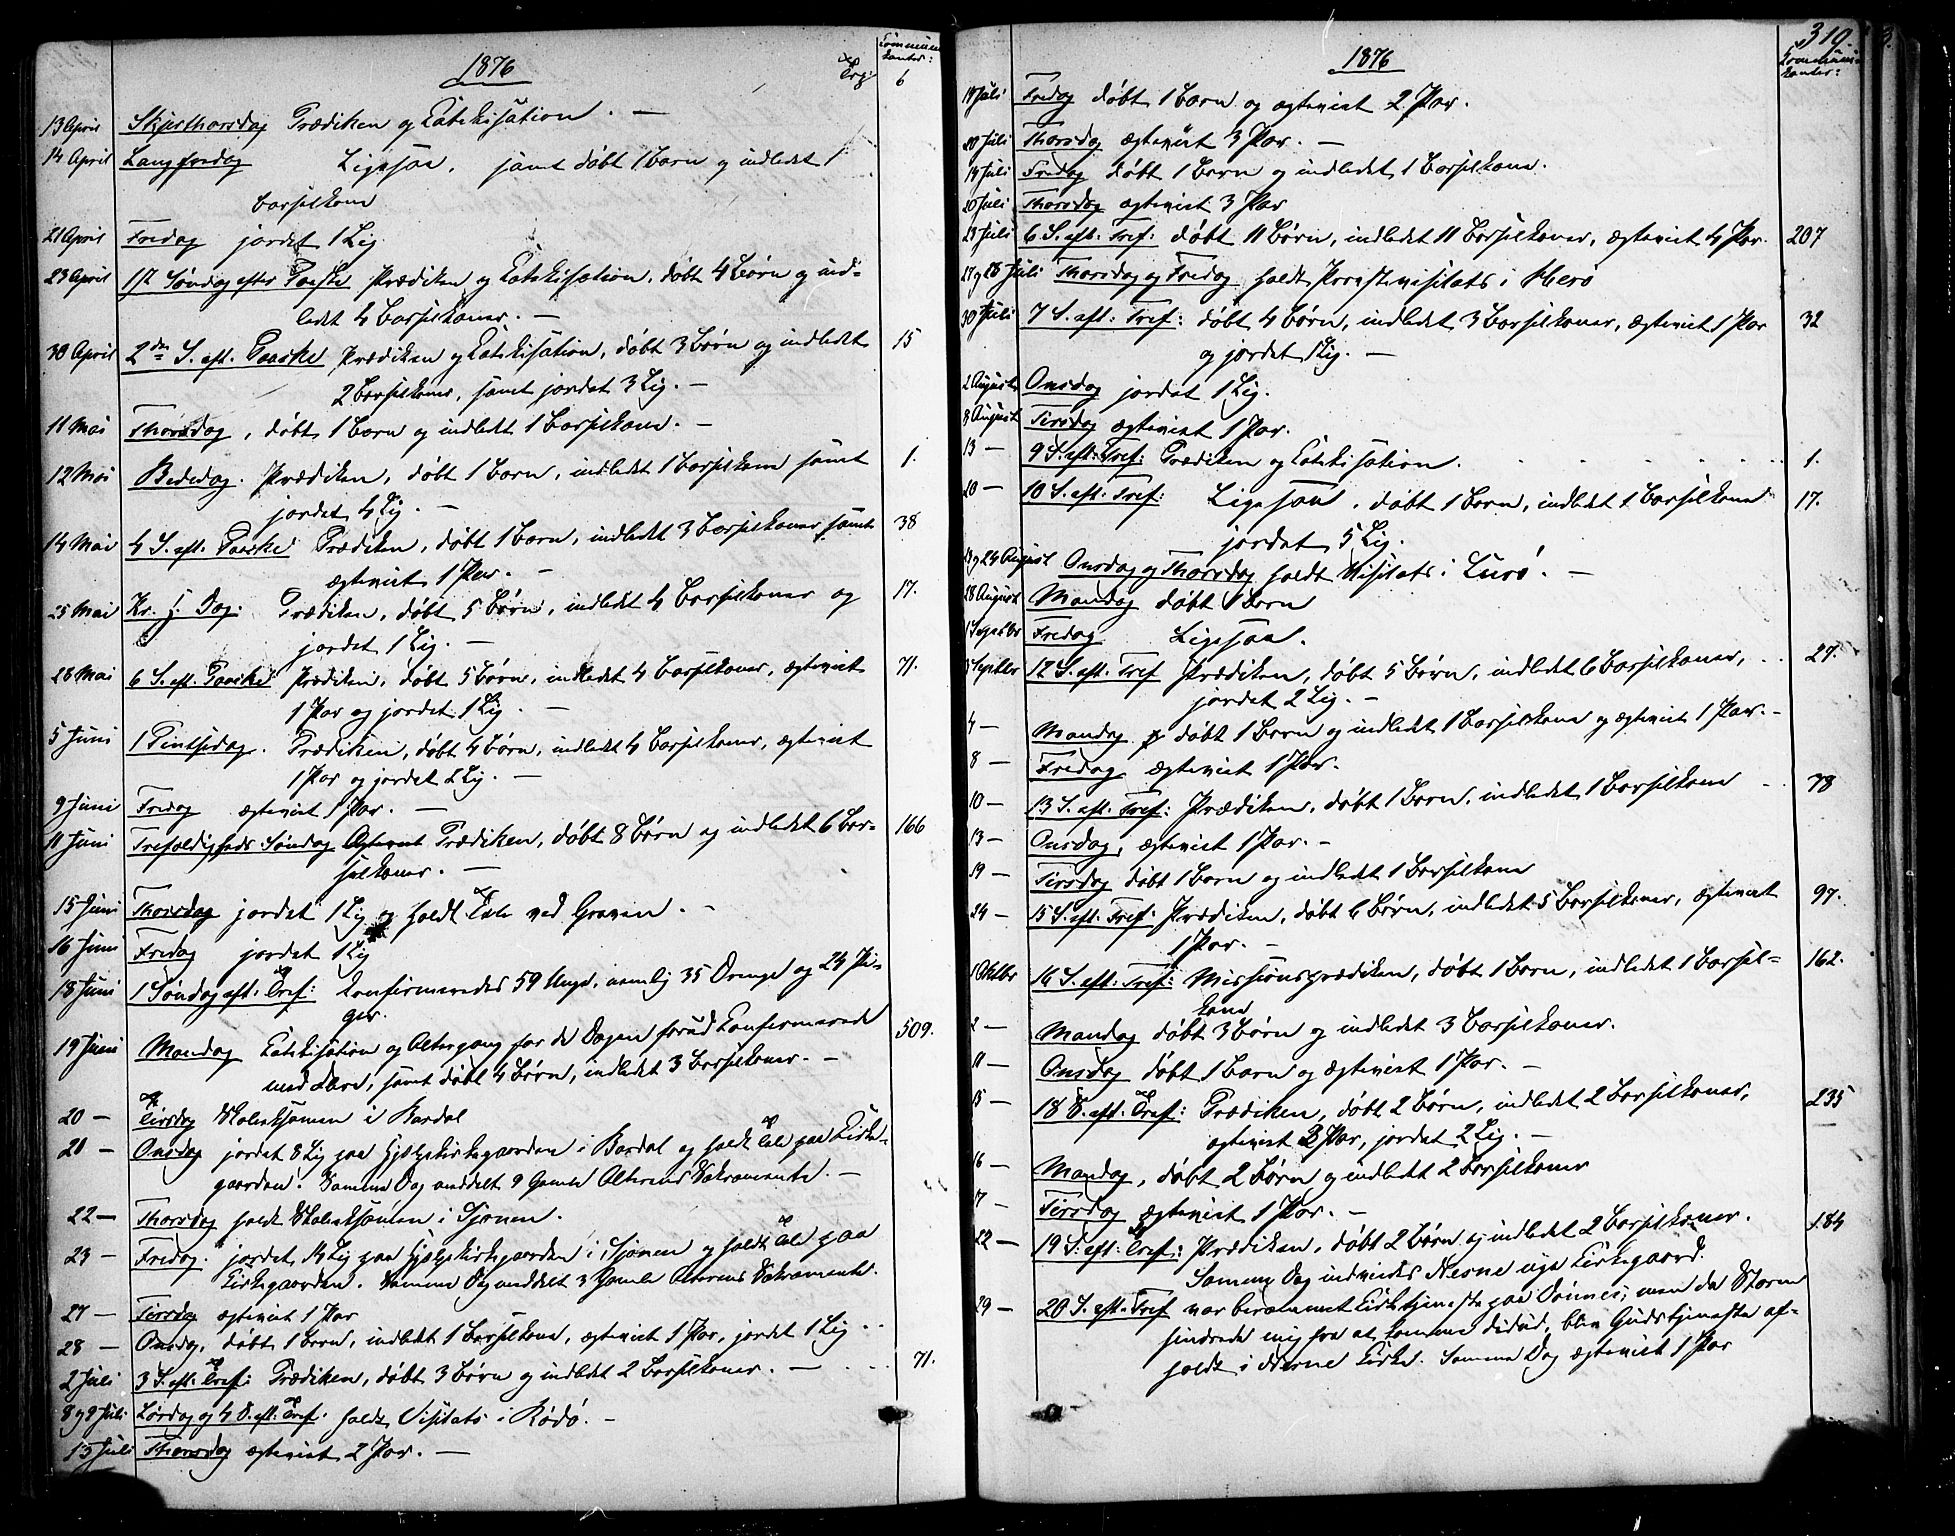 1876
Communi-
kanter:
13 April Skjærthorsdag Prædiken og Catekisation. — 6
14 April Langfredag Ligesaa, samt døbt 1 Barn og indledet 1
Barselkone
21 April Fredag jordet 1 Lig
23 April 1ste Søndag efter Paaske Prædiken og Catekisation, døbt 4 Børn og ind-
ledet 4 Barselkoner. —
30 April 2den S. eft. Paaske Prædiken og Catekisation, døbt 3 Børn og indledet 15
2 Barselkoner, samt jordet 3 Lig. —
11 Mai Thorsdag, døbt 1 Barn og indledt 1 Barselkone. —
12 Mai Bededag. Prædiken, døbt 1 Barn, indledet 1 Barselkone samt 1.
jordet 4 Lig. —
14 Mai 4 S. eft. Paaske Prædiken, døbt 1 Barn, indledet 3 Barselkoner samt 38
ægteviet 1 Par. —
25 Mai Kr. H. Dag: Prædiken, døbt 5 Børn, indledet 4 Barselkoner og 17.
jordet 1 Lig. —
28 Mai 6 S. eft. Paaske Prædiken, døbt 5 Børn, indledet 4 Barselkoner, ægteviet 71.
1 Par og jordet 1 Lig. —
5 Juni 1 Pintsedag. Prædiken, døbt 4 Børn, indledt 4 Barselkoner, ægteviet
1 Par og jordet 2 Lig. —
9 Juni Fredag ægteviet 1 Par. —
11 Juni Trefoldigheds Søndag Prædiken, døbt 8 Børn og indledet 6 Bar- 166
selkoner. —
15 Juni Thorsdag jordet 1 Lig og holdt Tale ved Graven. —
16 Juni Fredag jordet 1 Lig
18 Juni 1 Søndag eft. Tref: Confirmeredes 59 Unge, nemlig 35 Drenge og 24 Pi-
ger.
19 Juni Mandag Catekisation og Altergang for de Dagen forud Confirmerede 509.
med Flere, samt døbt 4 Børn, indledet 3 Barselkoner. —
20 — Tirsdag Skoleeksamen i Bardal
21 — Onsdag jordet 8 Lig paa Hjælpekirkegaarden i Bardal og holdt Tale paa Kirke-
gaarden. Samme Dag meddelt 9 Gamle Alterens Sakramente. —
22 — Thorsdag holdt Skoleeksamen i Sjonen.
23 — Fredag. jordet 14 Lig paa Hjælpekirkegaarden i Sjonen og holdt Tale paa
Kirkegaarden. Samme Dag meddelt 3 Gamle Alterens Sakramente.
27 — Tirsdag ægteviet 1 Par
28 — Onsdag, døbt 1 Barn, indledt 1 Barselkone, ægteviet 1 Par, jordet 1 Lig
2 Juli 3 S. eft. Tref: Prædiken, døbt 3 Børn og indledet 2 Barselkoner. — 71.
8 og 9 Juli Lørdag og 4 S. eft. Tref. holdt Visitats i Rødø. —
13 Juli Thorsdag ægteviet 2 Par. —
319.
1876
Kommuni-
kanter:
14 Juli Fredag døbt 1 Barn og ægteviet 2 Par.
20 Juli Thorsdag ægteviet 3 Par. —
14 Juli Fredag døbt 1 Barn og indledet 1 Barselkone.
20 Juli Thorsdag ægteviet 3 Par
23 Juli 6 S. eft. Tref: døbt 11 Børn, indledet 11 Barselkoner, ægteviet 4 Par. 207
27 og 28 Juli Thorsdag og Fredag holdt Provstevisitats i Herø
30 Juli 7 S. eft. Tref: døbt 4 Børn, indledet 3 Barselkoner, ægteviet 1 Par 32
og jordet 1 Lig. —
2 August Onsdag jordet 1 Lig.
8 August Tirsdag ægteviet 1 Par.
13 — 9 S. eft. Tref: Prædiken og Catekisation. 1.
20 — 10 S. eft: Tref: Ligesaa, døbt 1 Barn, indledet 1 Barselkone 17.
jordet 5 Lig.
23 og 24 August Onsdag og Thorsdag holdt Visitats i Lurø. —
28 August Mandag døbt 1 Barn
1 Septbr Fredag Ligesaa.
3 Septbr 12 S. eft. Tref Prædiken, døbt 5 Børn, indledet 6 Barselkoner, 27.
jordet 2 Lig. —
4 — Mandag døbt 1 Barn og indledet 1 Barselkone og ægteviet 1 Par. —
8 — Fredag ægteviet 1 Par.
10 — 13 S. eft: Tref: Prædiken, døbt 1 Barn, indledet 1 Barselkone 78
13 — Onsdag, ægteviet 1 Par. —
19 — Tirsdag døbt 1 Barn og indledt 1 Barselkone
24 — 15 S. eft. Tref: Prædiken, døbt 6 Børn, indledet 5 Barselkoner, ægteviet 97.
1 Par. —
1 Oktbr 16 S. eft: Tref: Missionsprædiken, døbt 1 Barn, indledet 1 Barsel- 162.
kone
2 — Mandag døbt 3 Børn og indledet 3 Barselkoner.
11 — Onsdag døbt 1 Barn og ægteviet 1 Par. —
15 — 18 S. eft. Tref: Prædiken, døbt 2 Børn, indledet 2 Barselkoner, 235
ægteviet 2 Par, jordet 2 Lig. —
16 — Mandag, døbt 2 Børn og indledet 2 Barselkoner
17 — Tirsdag ægteviet 1 Par. —
22 — 19 S. eft: Tref: Prædiken, døbt 2 Børn og indledet 2 Barselkoner. 184
Samme Dag indviedes Nesne nye Kirkegaard.
29 — 20 S. eft. Tref var berammet Kirketjeneste paa Dønnes, men da Storm
hindrede mig fra at komme didud, blev Gudstjenesten af-
holdt i Nesne Kirke. Samme Dag ægteviet 1 Par